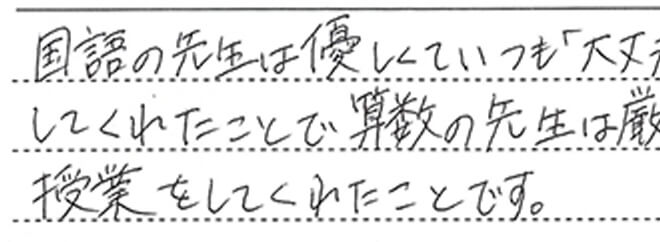 国語の先生は優しくていつも「大丈夫
してくれたことで算数の先生は厳
授業をしてくれたことです。